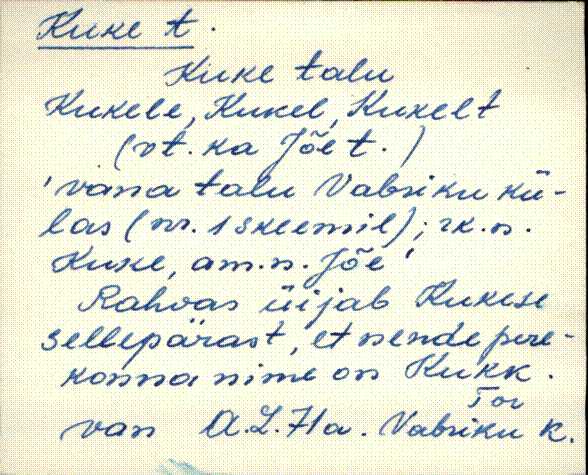 Kuke t.
Kuke talu
Kukele, Kukel, Kukelt
(vt. ka Jõe t.)
'vana talu Vabriku kü-
las (nr. 1 skeemil); rk.n.
Kuke, am.n. Jõe'
Rahvas üijab Kukese
sellepärast, et nende pere-
konna nime on Kukk.
Tor
van A.L. 71a. Vabriku k.